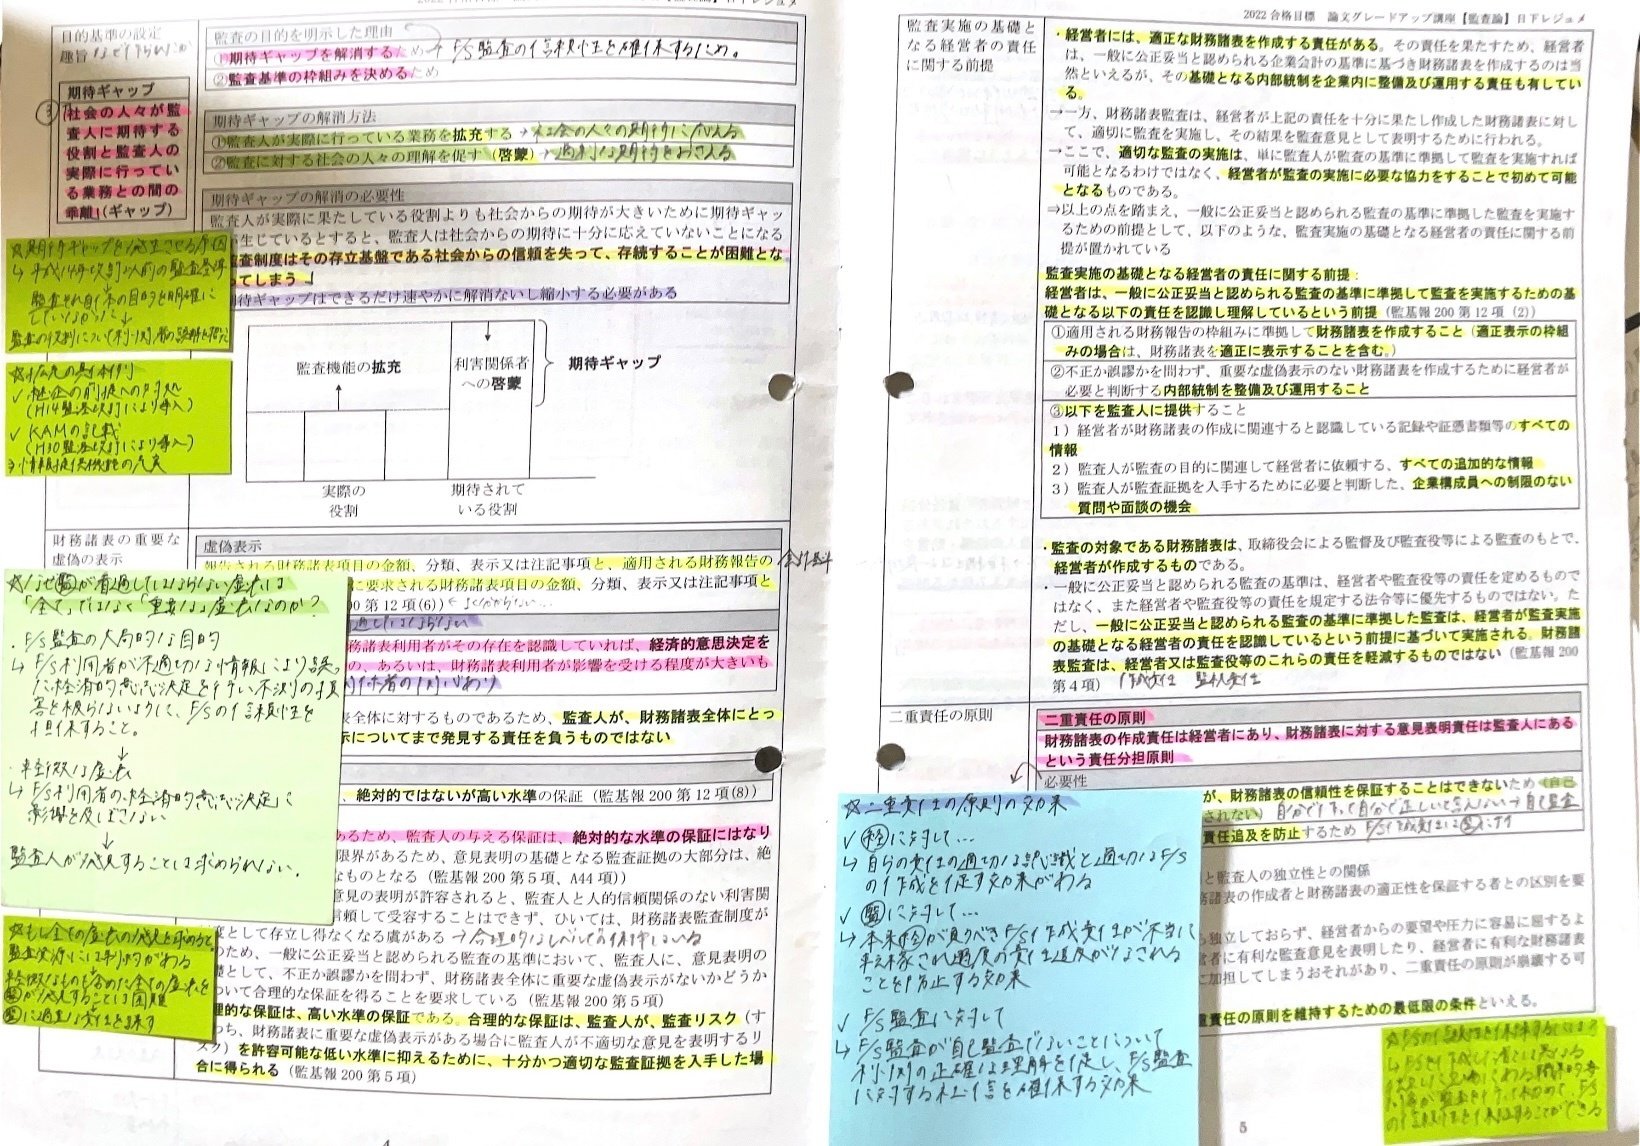 目的基準の設定
趣旨
期待ギャップ
③
社会の人々が監
査人に期待する
役割と監査人の
実際に行ってい
る業務との間の
乖離(ギャップ)
監査の目的を明示した理由
①期待ギャップを解消するため → F/S監査の信頼性を確保するため。
②監査基準の枠組みを決めるため
期待ギャップの解消方法
①監査人が実際に行っている業務を拡充する → 社会の人々の期待に応える
②監査に対する社会の人々の理解を促す(啓蒙) → 過剰な期待をおさえる
期待ギャップの解消の必要性
監査人が実際に果たしている役割よりも社会からの期待が大きいために期待ギャッ
が生じているとすると、監査人は社会からの期待に十分に応えていないことになる
監査制度はその存立基盤である社会からの信頼を失って、存続することが困難とな
ってしまう
期待ギャップはできるだけ速やかに解消ないし縮小する必要がある
☆期待ギャップを発生させる原因
↳ 平成14年改訂以前の監査基準
監査それ自体の目的を明確に
していなかった
☆拡充の具体例
✓ 継企の前提への対処
(H14監基改訂により導入)
✓ KAMの記載
(H30監基改訂により導入)
⇒情報提供機能の充実
監査機能の拡充
利害関係者
への啓蒙
期待ギャップ
実際の
役割
期待されて
いる役割
財務諸表の重要な
虚偽の表示
虚偽表示
報告される財務諸表項目の金額、分類、表示又は注記事項と、適用される財務報告の
に要求される財務諸表項目の金額、分類、表示又は注記事項と
00 第 12 項(6))
務諸表利用者がその存在を認識していれば、経済的意思決定を
の、あるいは、財務諸表利用者が影響を受ける程度が大きいも
表全体に対するものであるため、監査人が、財務諸表全体にとっ
示についてまで発見する責任を負うものではない
、絶対的ではないが高い水準の保証(監基報 200 第 12 項(8))
あるため、監査人の与える保証は、絶対的な水準の保証にはなり
限界があるため、意見表明の基礎となる監査証拠の大部分は、絶
なものとなる(監基報 200 第 5 項、A44 項))
意見の表明が許容されると、監査人と人的信頼関係のない利害関
信頼して受容することはできず、ひいては、財務諸表監査制度が
度として存立し得なくなる虞がある → 合理的なレベルでの保証はいる
のため、一般に公正妥当と認められる監査の基準において、監査人に、意見表明の
礎として、不正か誤謬かを問わず、財務諸表全体に重要な虚偽表示がないかどうか
ついて合理的な保証を得ることを要求している(監基報 200 第 5 項)
理的な保証は、高い水準の保証である。合理的な保証は、監査人が、監査リスク(す
わち、財務諸表に重要な虚偽表示がある場合に監査人が不適切な意見を表明するリ
スク)を許容可能な低い水準に抑えるために、十分かつ適切な監査証拠を入手した場
合に得られる(監基報 200 第 5 項)
☆なぜ監が看過してはならない虚表は
「全て」ではなく「重要な」虚表なのか?
・F/S監査の大局的な目的
↳ F/S利用者が不適切な情報により誤っ
た経済的意思決定を行い不測の損
害を被らないように、F/Sの信頼性を
担保すること。
↓
・軽微な虚表
↳ F/S利用者の経済的意思決定に
影響を及ぼさない
↓
監査人が発見することは求められない。
☆もし全ての虚表の発見を求めると、
監査資源には制約がある
軽微なものも含めた全ての虚表を
監が発見することは困難
監に過重な責任を課す
2022 合格目標 論文グレードアップ講座【監査論】日下レジュメ
監査実施の基礎と
なる経営者の責任
に関する前提
・経営者には、適正な財務諸表を作成する責任がある。その責任を果たすため、経営者
は、一般に公正妥当と認められる企業会計の基準に基づき財務諸表を作成するのは当
然といえるが、その基礎となる内部統制を企業内に整備及び運用する責任も有してい
る。
→一方、財務諸表監査は、経営者が上記の責任を十分に果たし作成した財務諸表に対し
て、適切に監査を実施し、その結果を監査意見として表明するために行われる。
→ここで、適切な監査の実施は、単に監査人が監査の基準に準拠して監査を実施すれば
可能となるわけではなく、経営者が監査の実施に必要な協力をすることで初めて可能
となるものである。
⇒以上の点を踏まえ、一般に公正妥当と認められる監査の基準に準拠した監査を実施す
るための前提として、以下のような、監査実施の基礎となる経営者の責任に関する前
提が置かれている
監査実施の基礎となる経営者の責任に関する前提:
経営者は、一般に公正妥当と認められる監査の基準に準拠して監査を実施するための基
礎となる以下の責任を認識し理解しているという前提(監基報 200 第 12 項 (2))
①適用される財務報告の枠組みに準拠して財務諸表を作成すること(適正表示の枠組
みの場合は、財務諸表を適正に表示することを含む。)
②不正か誤謬かを問わず、重要な虚偽表示のない財務諸表を作成するために経営者が
必要と判断する内部統制を整備及び運用すること
③以下を監査人に提供すること
1)経営者が財務諸表の作成に関連すると認識している記録や証憑書類等のすべての
情報
2)監査人が監査の目的に関連して経営者に依頼する、すべての追加的な情報
3)監査人が監査証拠を入手するために必要と判断した、企業構成員への制限のない
質問や面談の機会
・監査の対象である財務諸表は、取締役会による監督及び監査役等による監査のもとで、
経営者が作成するものである。
・一般に公正妥当と認められる監査の基準は、経営者や監査役等の責任を定めるもので
はなく、また経営者や監査役等の責任を規定する法令等に優先するものではない。た
だし、一般に公正妥当と認められる監査の基準に準拠した監査は、経営者が監査実施
の基礎となる経営者の責任を認識しているという前提に基づいて実施される。財務諸
表監査は、経営者又は監査役等のこれらの責任を軽減するものではない(監基報 200
第 4 項) 作成責任 監視責任
二重責任の原則
二重責任の原則
財務諸表の作成責任は経営者にあり、財務諸表に対する意見表明責任は監査人にある
という責任分担原則
必要性
が、財務諸表の信頼性を保証することはできないため(自己
されない)
責任追及を防止するため
と監査人の独立性との関係
諸表の作成者と財務諸表の適正性を保証する者との区別を要
ら独立しておらず、経営者からの要望や圧力に容易に屈するよ
者に有利な監査意見を表明したり、経営者に有利な財務諸表
に加担してしまうおそれがあり、二重責任の原則が崩壊する可
重責任の原則を維持するための最低限の条件といえる。
☆二重責任の原則の効果
✓ 経に対して…
↳ 自らの責任の適切な認識と適切なF/S
の作成を促す効果がある
✓ 監に対して…
↳ 本来経が負うべきF/S作成責任が不当に
転嫁され過度の責任追及がなされる
ことを防止する効果
✓ F/S監査に対して
↳ F/S監査が自己監査でないことについて
利・関の正確な理解を促し、F/S監査
に対する社・信を確保する効果
5